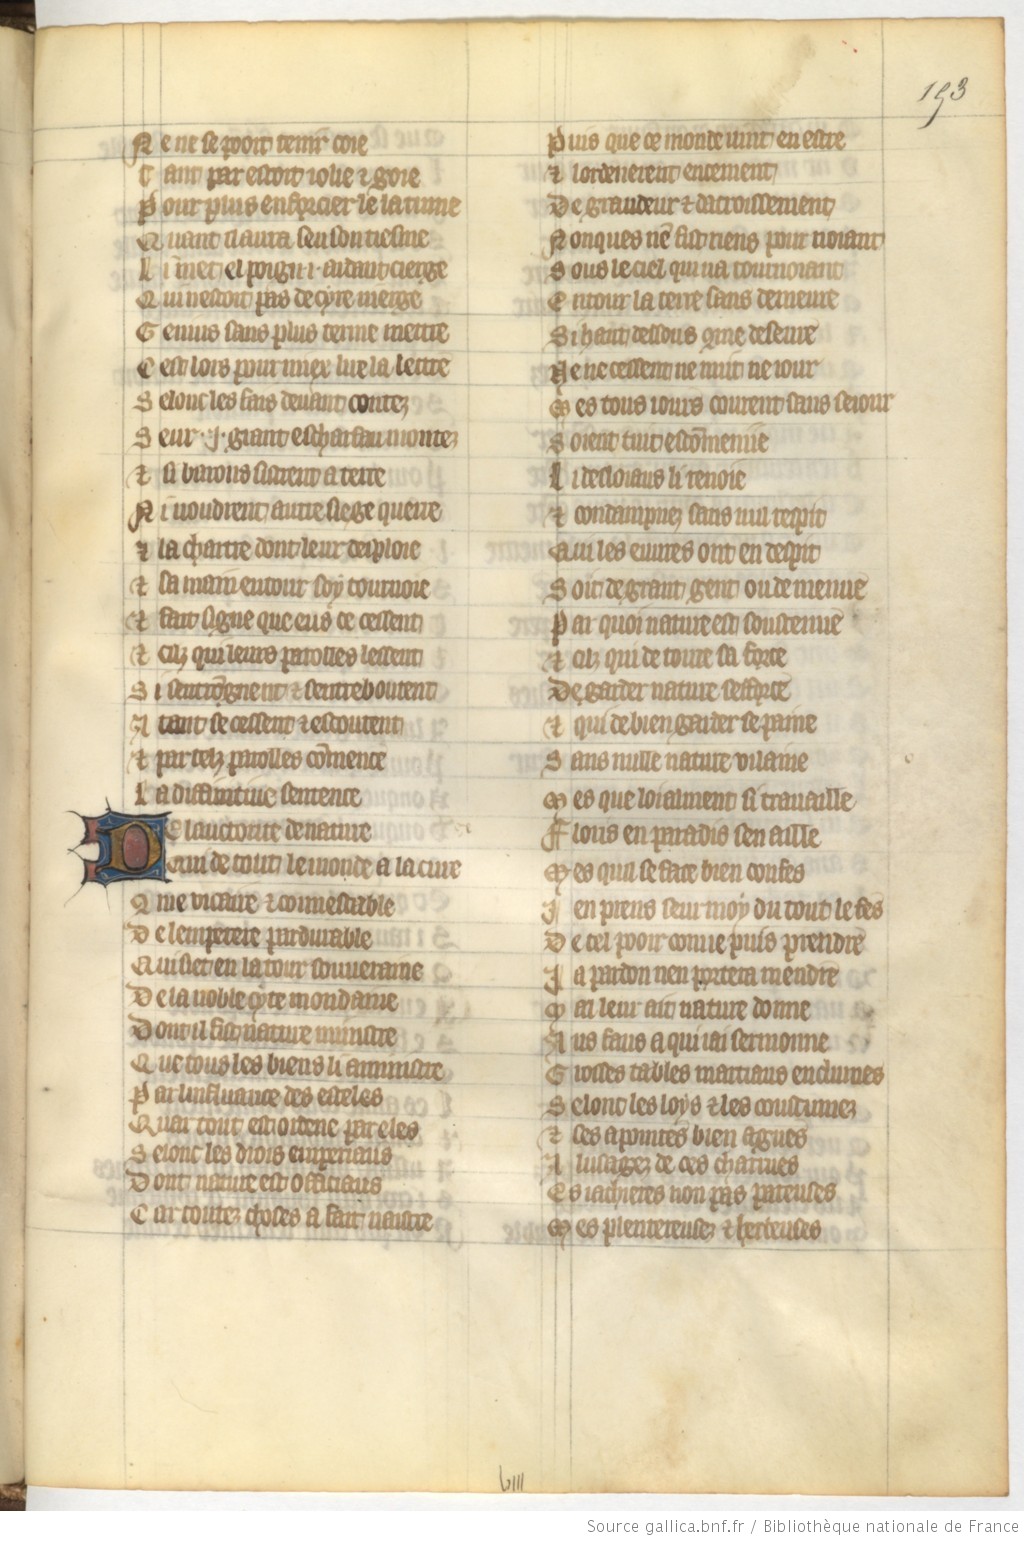 193
Ne ne se pooit tenir coie
Tant par estoit iolie & goie
Pour plus enforcier le latume
Quant il aura leu son tiesme
Li met el poign .i. ardant cierge
Qui nestoit pas de cyre vierge
Genius sans plus terme mettre
Cest lors pour miex lire la lettre
Selonc les fais devant contez
Seur .i. grant eschafau montez
Et si barons sistrent a terre
Ni voudrent autre siege querre
& la chartre dont leur desploie
Et sa main entour soy tournoie
Et fait signe que eus ce cessent
Et cilz qui leurs parolles lessent
Si sentrõgnent & sentreboutent
Atant se cessent & escoutent
Et par telz parolles cõmence
La diffinitive sentence
De lauctorite de nature
Qui de tout le monde a la cure
Cõme vicaire & connestable
De lemperere pardurable
Qui siet en la tour souveraine
De la noble cyte mondaine
Dont il fist nature ministre
Que tous les biens li aministre
Par linfluance des esteles
Quar tout est ordene par eles
Selonc les drois emperiaus
Dont nature est officiaus
Car toutez choses a fait naistre
Puis que ce monde vint en estre
& lor denerent encement
De grandeur & dacroissement
Nonques ne fist riens pour noiant
Sous le ciel qui va tournoiant
Entour la terre sans demeure
Si haut dessous cõme deseure
Ne ne cessent ne nuit ne iour
Mes tous iours courent sans seiour
Soient tuit escõmenie
Li desloiaus li renoie
Et condampnez sans nul respit
Qui les euvres ont en despit
Soit de grant gent ou de menue
Par quoi nature est soustenue
Et cilz qui de toute sa force
De garder nature sefforce
Et qui de bien garder se paine
Sans nulle nature vilaine
Mes que loialment si travaille
Floris en paradis sen aille
Mes quil se face bien confes
Jen prens seur moy du tout le fes
De tel pooir comme puis prendre
Ja pardon nen portera mendre
Mal leur ait nature donne
Aus faus a qui iai sermonne
Grosses tables martiaus enclumes
Selonc les loys & les coustumez
Et ses a pointes bien agues
A lusagez de ces charrues
Es iachieres non pas pereuses
Mes plentereusez & herbeuses
viii
Source gallica.bnf.fr / Bibliothèque nationale de France